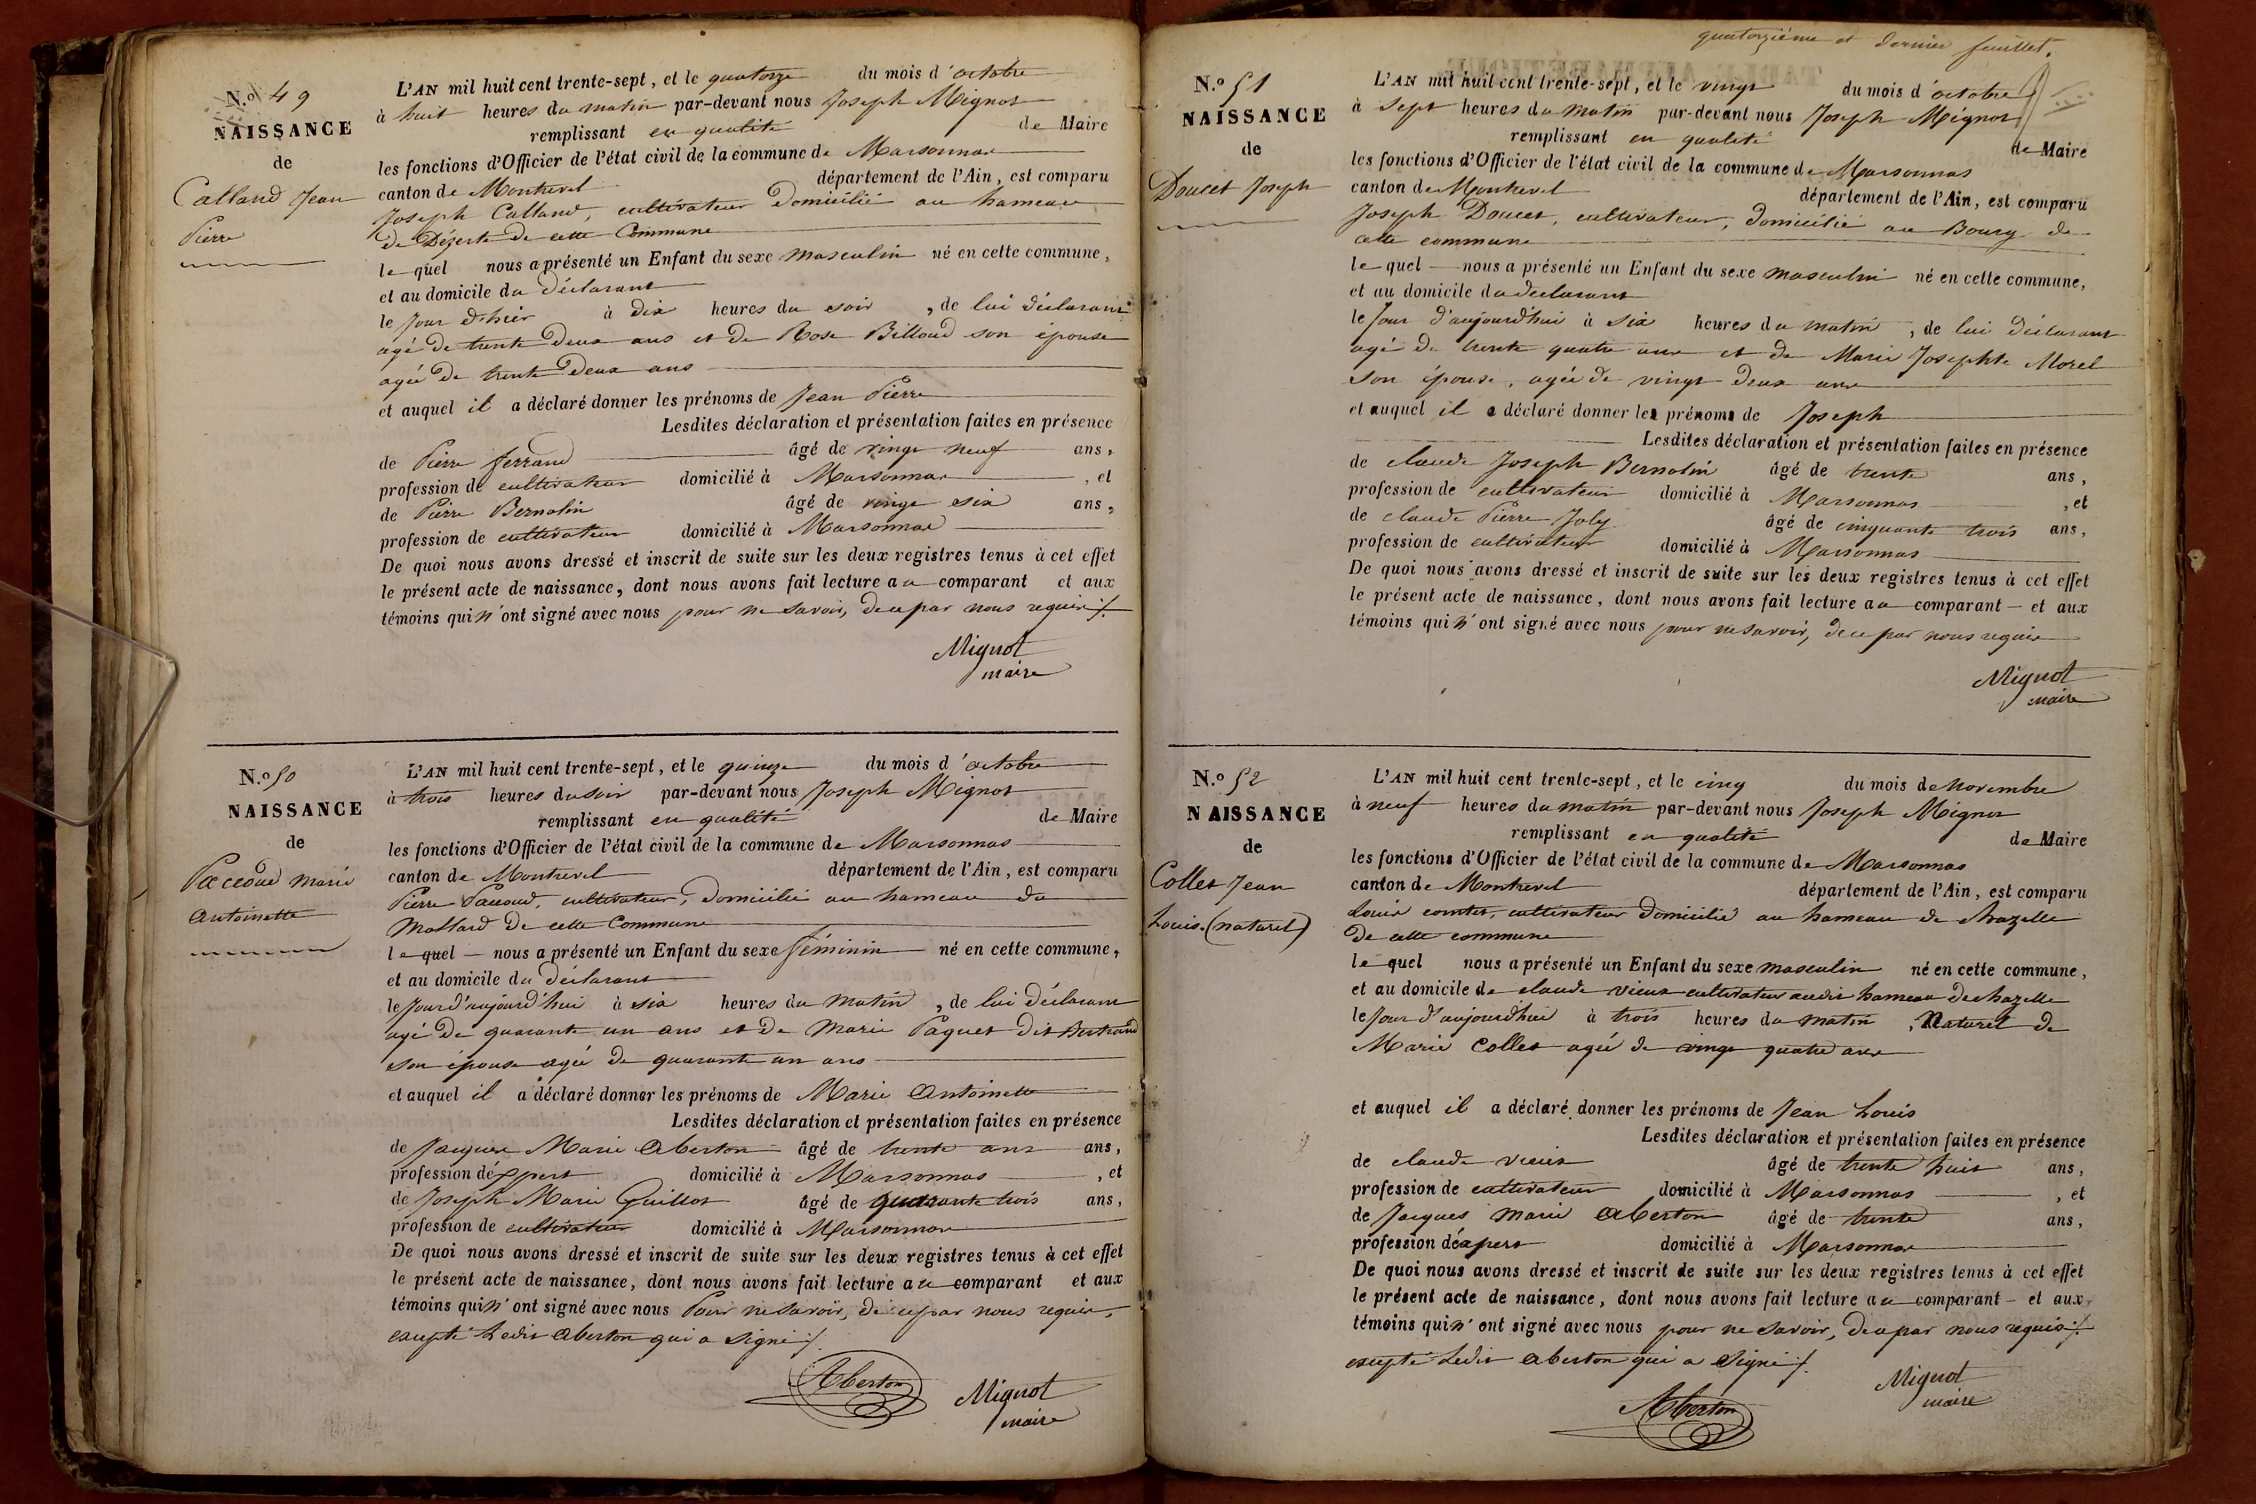 N.º 49
NAISSANCE
de
Calland Jean
Pierre
L'AN mil huit cent trente-sept, et le quatorze du mois d'octobre
à huit heures du matin par-devant nous Joseph Mignot
remplissant en qualité de Maire
les fonctions d'Officier de l'état civil de la commune de Marsonnas
canton de Montrevel département de l'Ain, est comparu
Joseph Calland, cultivateur domicilié au hameau
de Dézerte de cette Commune
le quel nous a présenté un Enfant du sexe masculin né en cette commune,
et au domicile du déclarant
le jour d'hier à dix heures du soir, de lui déclarant
agé de trente deux ans et de Rose Billoud son épouse
agée de trente deux ans
et auquel il a déclaré donner les prénoms de Jean Pierre
Lesdites déclaration et présentation faites en présence
de Pierre ferrand âgé de vingt neuf ans,
profession de cultivateur domicilié à Marsonnas, et
de Pierre Bernolin âgé de vingt six ans,
profession de cultivateur domicilié à Marsonnas
De quoi nous avons dressé et inscrit de suite sur les deux registres tenus à cet effet
le présent acte de naissance, dont nous avons fait lecture au comparant et aux
témoins qui n'ont signé avec nous pour ne savoir, de ce par nous requis ./.
Mignot
maire
N.º 50
NAISSANCE
de
Paccoud marie
antoinette
L'AN mil huit cent trente-sept, et le quinze du mois d'octobre
à trois heures du soir par-devant nous Joseph Mignot
remplissant en qualité de Maire
les fonctions d'Officier de l'état civil de la commune de Marsonnas
canton de Montrevel département de l'Ain, est comparu
Pierre Paccoud, cultivateur, domicilié au hameau du
Mollard de cette Commune
le quel nous a présenté un Enfant du sexe féminin né en cette commune,
et au domicile du déclarant
le jour d'aujourd'hui à six heures du matin, de lui déclarant
agé de quarante un ans et de Marie Paquet dit Bertrand
son épouse agée de quarante un ans
et auquel il a déclaré donner les prénoms de Marie Antoinette
Lesdites déclaration et présentation faites en présence
de Jacques Marie Aberton âgé de trente ans ans,
profession d'expert domicilié à Marsonnas, et
de Joseph Marie Guillot âgé de quarante trois ans,
profession de cultivateur domicilié à Marsonnas
De quoi nous avons dressé et inscrit de suite sur les deux registres tenus à cet effet
le présent acte de naissance, dont nous avons fait lecture au comparant et aux
témoins qui n'ont signé avec nous Pour ne savoir, de ce par nous requis,
excepté Ledit aberton qui a signé ./.
Aberton Mignot
maire
quatorzième et dernier feuillet.
N.º 51
NAISSANCE
de
Doucet Joseph
L'AN mil huit cent trente-sept, et le vingt du mois d'octobre
à sept heures du matin par-devant nous Joseph Mignot
remplissant en qualité de Maire
les fonctions d'Officier de l'état civil de la commune de Marsonnas
canton de Montrevel département de l'Ain, est comparu
Joseph Doucet, cultivateur, domicilié au Bourg de
cette commune
le quel nous a présenté un Enfant du sexe masculin né en cette commune,
et au domicile du déclarant
le jour d'aujourd'hui à six heures du matin, de lui déclarant
agé de trente quatre ans et de Marie Josephte Morel
son épouse, agée de vingt deux ans
et auquel il a déclaré donner les prénoms de Joseph
Lesdites déclaration et présentation faites en présence
de claude Joseph Bernolin âgé de trente ans,
profession de cultivateur domicilié à Marsonnas, et
de claude Pierre Joly âgé de cinquante trois ans,
profession de cultivateur domicilié à Marsonnas
De quoi nous avons dressé et inscrit de suite sur les deux registres tenus à cet effet
le présent acte de naissance, dont nous avons fait lecture au comparant et aux
témoins qui n'ont signé avec nous pour ne savoir, de ce par nous requis
Mignot
maire
N.º 52
NAISSANCE
de
Collet Jean
Louis (naturel)
L'AN mil huit cent trente-sept, et le cinq du mois de Novembre
à neuf heures du matin par-devant nous Joseph Mignot
remplissant en qualité de Maire
les fonctions d'Officier de l'état civil de la commune de Marsonnas
canton de Montrevel département de l'Ain, est comparu
Louis comtet, cultivateur domicilié au hameau de chazelle
de cette commune
le quel nous a présenté un Enfant du sexe masculin né en cette commune,
et au domicile de claude vieux cultivateur audit hameau de chazelle
le jour d'aujourdhui à trois heures du matin, Naturel de
Marie Collet agée de vingt quatre ans
et auquel il a déclaré donner les prénoms de Jean Louis
Lesdites déclaration et présentation faites en présence
de claude vieux âgé de trente huit ans,
profession de cultivateur domicilié à Marsonnas, et
de Jacques marie Aberton âgé de trente ans,
profession d'expert domicilié à Marsonnas
De quoi nous avons dressé et inscrit de suite sur les deux registres tenus à cet effet
le présent acte de naissance, dont nous avons fait lecture au comparant et aux
témoins qui n'ont signé avec nous pour ne savoir, de ce par nous requis ./.
excepté Ledit aberton qui a signé ./.
Aberton Mignot
maire